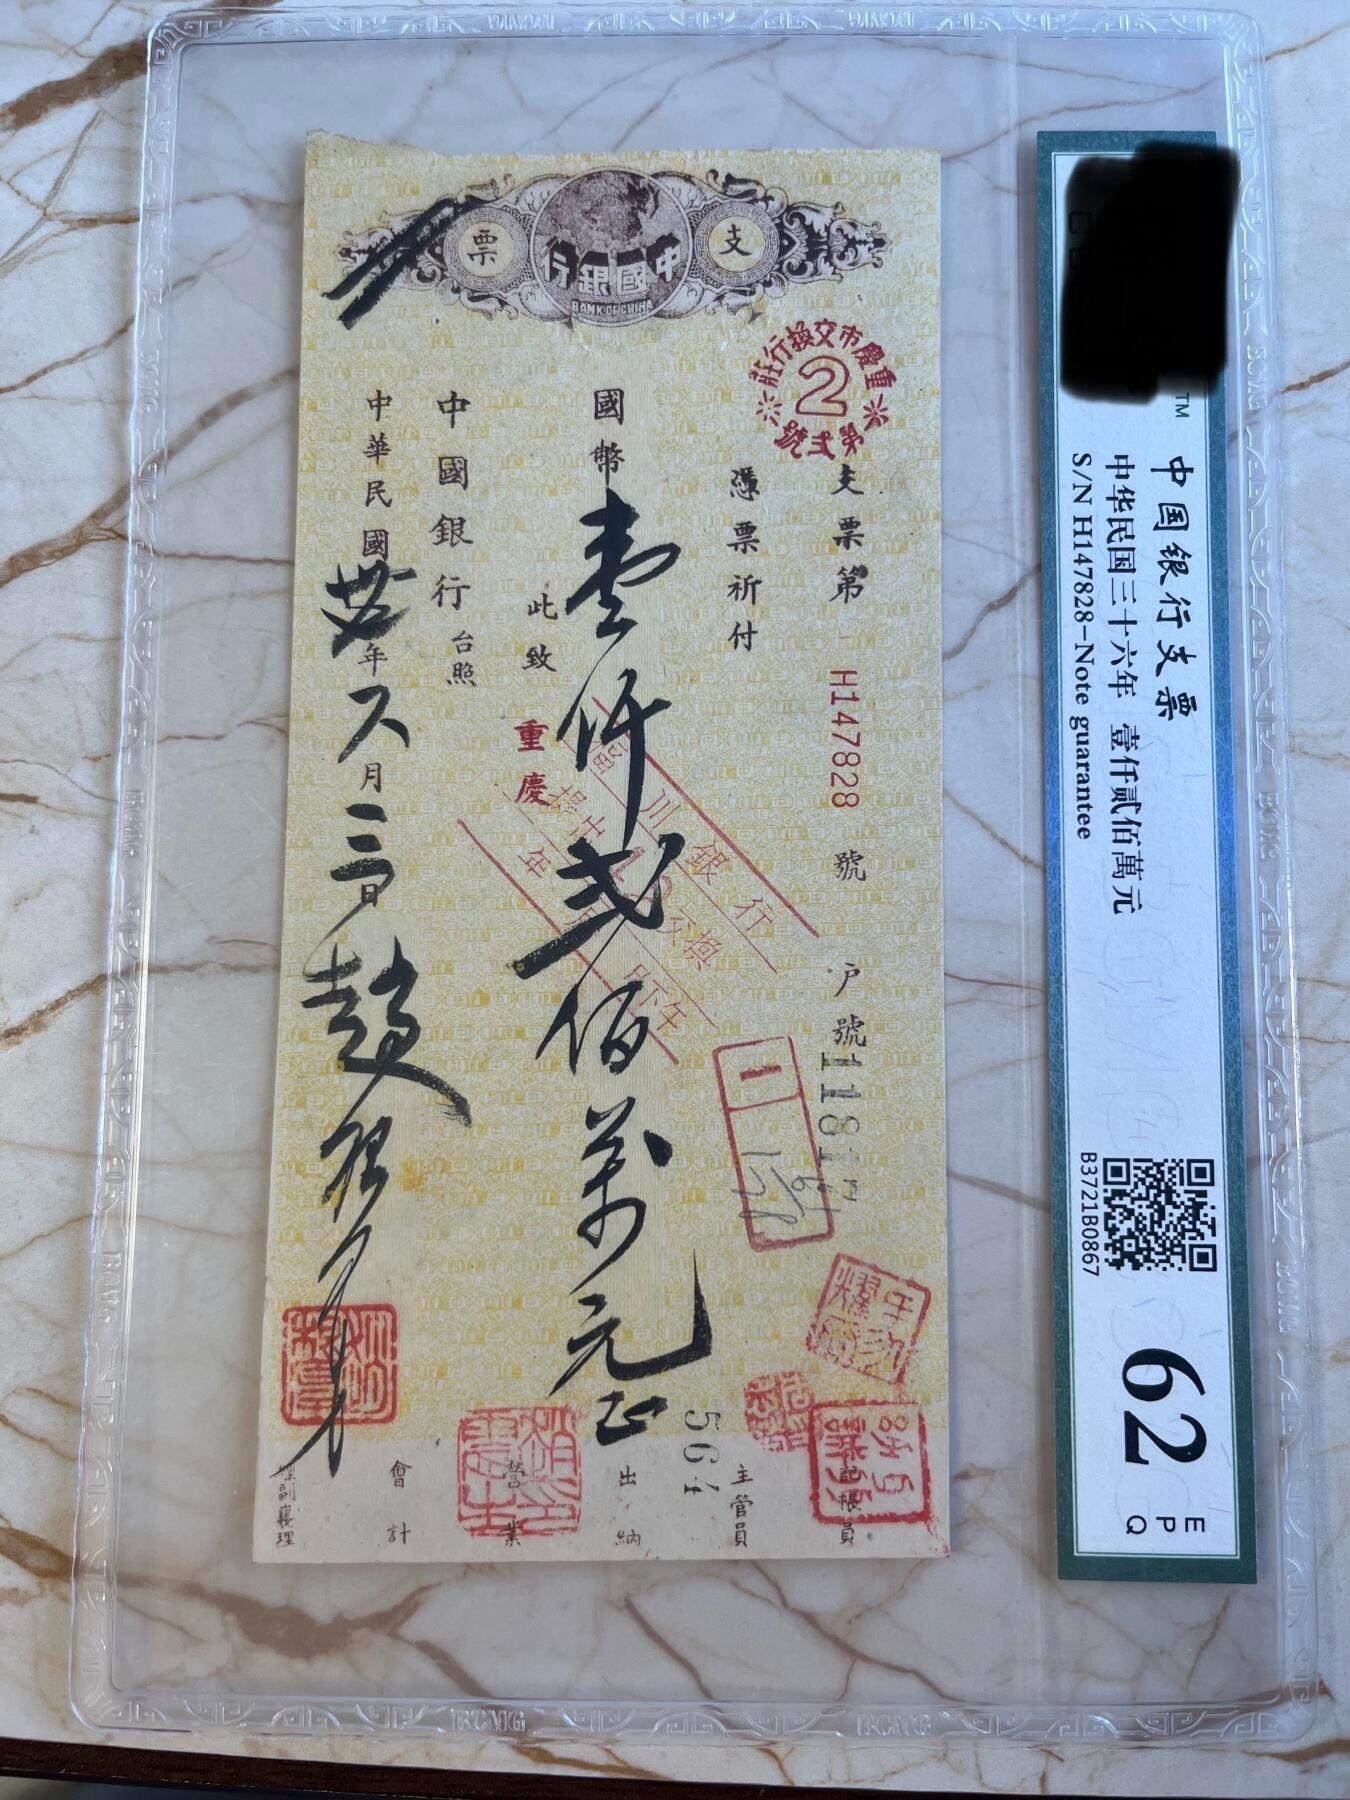 支 中國銀行 票
BANK OF CHINA
重慶市交換行莊
2
第弍號
支票第 H147828 號 户號 1181
憑票祈付
國幣壹仟弍佰萬元正
564
此致
重慶
中國銀行台照
中華民國卅六年 月 日
川銀行
換
年
記帳員
主管員
出納
營業
會計
經副襄理
中国银行支票
中华民国三十六年 壹仟贰佰萬元
S/N H147828-Note guarantee
B3721B0867
62
EPQ
TM
BCMG